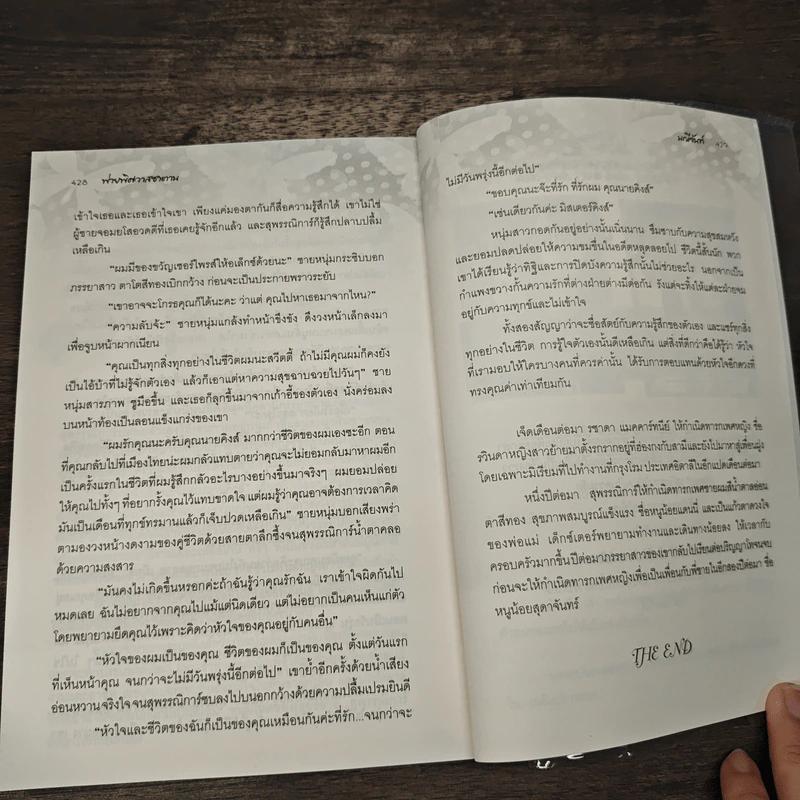 428
เข้าใจเธอและเธอเข้าใจเขา เพียงแค่มองตากันก็สื่อความรู้สึกได้ เขาไม่ใช่
ผู้ชายจอมยโสอวดดีที่เธอเคยรู้จักอีกแล้ว และสุพรรณิการ์ก็รู้สึกปลาบปลื้ม
เหลือเกิน
"ผมมีของขวัญเซอร์ไพรส์ให้อเล็กซ์ด้วยนะ" ชายหนุ่มกระซิบบอก
ภรรยาสาว ตาโตสีทองเบิกกว้าง ก่อนจะเป็นประกายพราวระยับ
"เขาอาจจะโกรธคุณก็ได้นะคะ ว่าแต่ คุณไปหาเธอมาจากไหน?"
"ความลับจ้ะ" ชายหนุ่มแกล้งทำหน้าขึงขัง ดึงวงหน้าเล็กลงมา
เพื่อจูบหน้าผากเนียน
"คุณเป็นทุกสิ่งทุกอย่างในชีวิตผมนะสวีตตี้ ถ้าไม่มีคุณผมก็คงยัง
เป็นไอ้บ้าที่ไม่รู้จักตัวเอง แล้วก็เอาแต่หาความสุขฉาบฉวยไปวันๆ" ชาย
หนุ่มสารภาพ ชูมือขึ้น และเธอก็ลุกขึ้นมาจากเก้าอี้ของตัวเอง นั่งคร่อมลง
บนหน้าท้องเป็นลอนแข็งแกร่งของเขา
"ผมรักคุณนะครับคุณนายคิงส์ มากกว่าชีวิตของผมเองซะอีก ตอน
ที่คุณกลับไปที่เมืองไทยน่ะผมกลัวแทบตายว่าคุณจะไม่ยอมกลับมาหาผมอีก
เป็นครั้งแรกในชีวิตที่ผมรู้สึกกลัวอะไรบางอย่างขึ้นมาจริงๆ ผมยอมปล่อย
ให้คุณไปทั้งๆ ที่อยากรั้งคุณไว้แทบขาดใจ แต่ผมรู้ว่าคุณอาจต้องการเวลาคิด
มันเป็นเดือนที่ทุกข์ทรมานแล้วก็เจ็บปวดเหลือเกิน" ชายหนุ่มบอกเสียงพร่า
ตามองวงหน้างดงามของคู่ชีวิตด้วยสายตาลึกซึ้งจนสุพรรณิการ์น้ำตาคลอ
ด้วยความสงสาร
"มันคงไม่เกิดขึ้นหรอกค่ะถ้าฉันรู้ว่าคุณรักฉัน เราเข้าใจผิดกันไป
หมดเลย ฉันไม่อยากจากคุณไปแม้แต่นิดเดียว แต่ไม่อยากเป็นคนเห็นแก่ตัว
โดยพยายามยึดคุณไว้เพราะคิดว่าหัวใจของคุณอยู่กับคนอื่น"
"หัวใจของผมเป็นของคุณ ชีวิตของผมก็เป็นของคุณ ตั้งแต่วันแรก
ที่เห็นหน้าคุณ จนกว่าจะไม่มีวันพรุ่งนี้อีกต่อไป" เขาย้ำอีกครั้งด้วยน้ำเสียง
อ่อนหวานจริงใจ จนสุพรรณิการ์ซบลงไปบนอกกว้างด้วยความปลื้มเปรมยินดี
"หัวใจและชีวิตของฉันก็เป็นของคุณเหมือนกันค่ะที่รัก...จนกว่าจะ
มณีจันท์
ไม่มีวันพรุ่งนี้อีกต่อไป"
"ขอบคุณนะจ๊ะที่รัก ที่รักผม คุณนายคิงส์"
"เช่นเดียวกันค่ะ มิสเตอร์คิงส์"
หนุ่มสาวกอดกันอยู่อย่างนั้นเนิ่นนาน ซึมซาบกับความสุขสมหวัง
และยอมปลดปล่อยให้ความขมขื่นในอดีตหลุดลอยไป ชีวิตนี้สั้นนัก พวก
เขาได้เรียนรู้ว่าทิฐิและการปิดบังความรู้สึกนั้นไม่ช่วยอะไร นอกจากเป็น
กำแพงขวางกั้นความรักที่ต่างฝ่ายต่างมีต่อกัน รังแต่จะทิ้งให้แต่ละฝ่ายจม
อยู่กับความทุกข์และไม่เข้าใจ
ทั้งสองสัญญาว่าจะซื่อสัตย์กับความรู้สึกของตัวเอง และแชร์ทุกสิ่ง
ทุกอย่างในชีวิต การรู้ใจตัวเองนั้นดีเหลือเกิน แต่สิ่งที่ดีกว่าคือได้รู้ว่า หัวใจ
ที่เรามอบให้ใครบางคนที่ควรค่านั้น ได้รับการตอบแทนด้วยหัวใจอีกดวงที่
ทรงคุณค่าเท่าเทียมกัน
เจ็ดเดือนต่อมา รชาดา แมคคาร์ทนีย์ ให้กำเนิดทารกเพศหญิง ชื่อ
รวินดาหญิงสาวย้ายมาตั้งรกรากอยู่ที่ฮ่องกงกับสามีและยังไปมาหาสู่เพื่อนฝูง
โดยเฉพาะมิเรียมที่ไปทำงานที่กรุงโรม ประเทศอิตาลีในอีกแปดเดือนต่อมา
หนึ่งปีต่อมา สุพรรณิการ์ให้กำเนิดทารกเพศชายผมสีน้ำตาลอ่อน
ตาสีทอง สุขภาพสมบูรณ์แข็งแรง ชื่อหนูน้อยแดนนี่ และเป็นแก้วตาดวงใจ
ของพ่อแม่ เด็กซ์เตอร์พยายามทำงานและเดินทางน้อยลง ให้เวลากับ
ครอบครัวมากขึ้นปีต่อมาภรรยาสาวของเขากลับไปเรียนต่อปริญญาโทจนจบ
ก่อนจะให้กำเนิดทารกเพศหญิงเพื่อเป็นเพื่อนกับพี่ชายในอีกสองปีต่อมา ชื่อ
หนูน้อยสุดาจันทร์
THE END